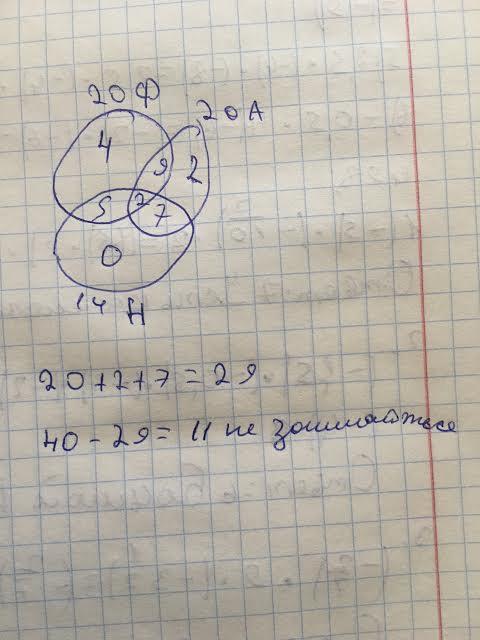 20 Ф
20 А
4
9
2
5
2
7
0
14 Н
20+2+7=29
40-29=11 не занимаются